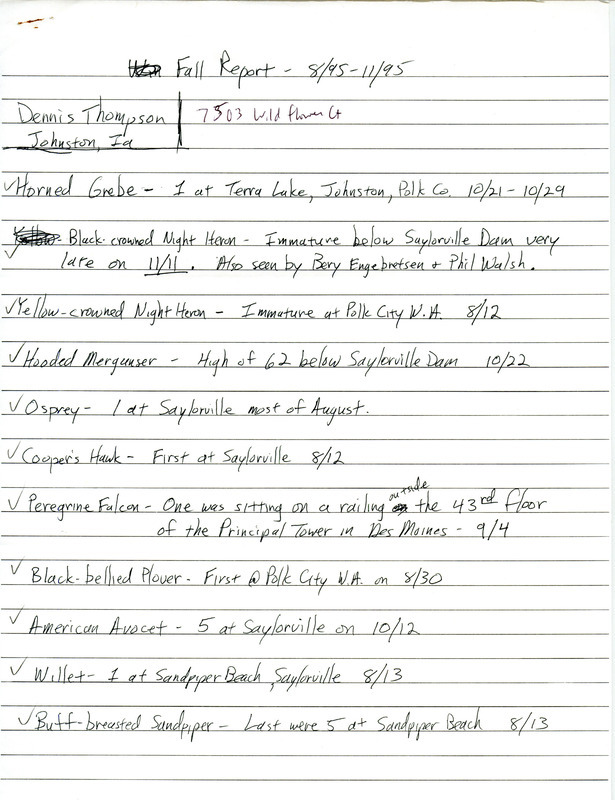 Fall Report - 8/95-11/95
Dennis Thompson
7503 Wildflower Ct
Johnston, Ia
✓Horned Grebe - 1 at Terra Lake, Johnston, Polk Co. 10/21-10/29
✓ Black-crowned Night Heron - Immature below Saylorville Dam very
late on 11/11. Also seen by Bery Engebretsen + Phil Walsh.
✓Yellow-crowned Night Heron - Immature at Polk City W.A. 8/12
✓Hooded Merganser - High of 62 below Saylorville Dam 10/22
✓Osprey - 1 at Saylorville most of August.
✓Cooper's Hawk - First at Saylorville 8/12
✓Peregrine Falcon - One was sitting on a railing outside the 43rd floor
of the Principal Tower in Des Moines - 9/4
✓Black-bellied Plover - First @ Polk City W.A. on 8/30
✓American Avocet - 5 at Saylorville on 10/12
✓Willet - 1 at Sandpiper Beach, Saylorville 8/13
✓Buff-breasted Sandpiper - Last were 5 at Sandpiper Beach 8/13